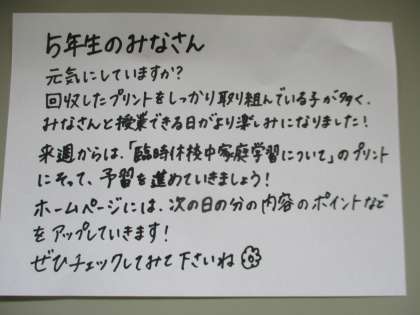 5年生のみなさん
元気にしていますか?
回収したプリントをしっかり取り組んでいる子が多く、
みなさんと授業できる日がより楽しみになりました!
来週からは、「臨時休校中家庭学習について」のプリント
にそって、予習を進めていきましょう!
ホームページには、次の日の分の内容のポイントなど
をアップしていきます!
ぜひチェックしてみて下さいね